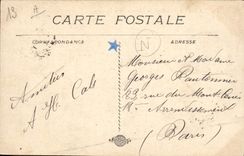 13 A
CARTE POSTALE
CORRESPONDANCE
ADRESSE
N
Amitiés
A. H. Cals
Monsieur et Madame
Georges Pantonnier
23 rue du Mont Cenis
Arrondissement
(Paris)